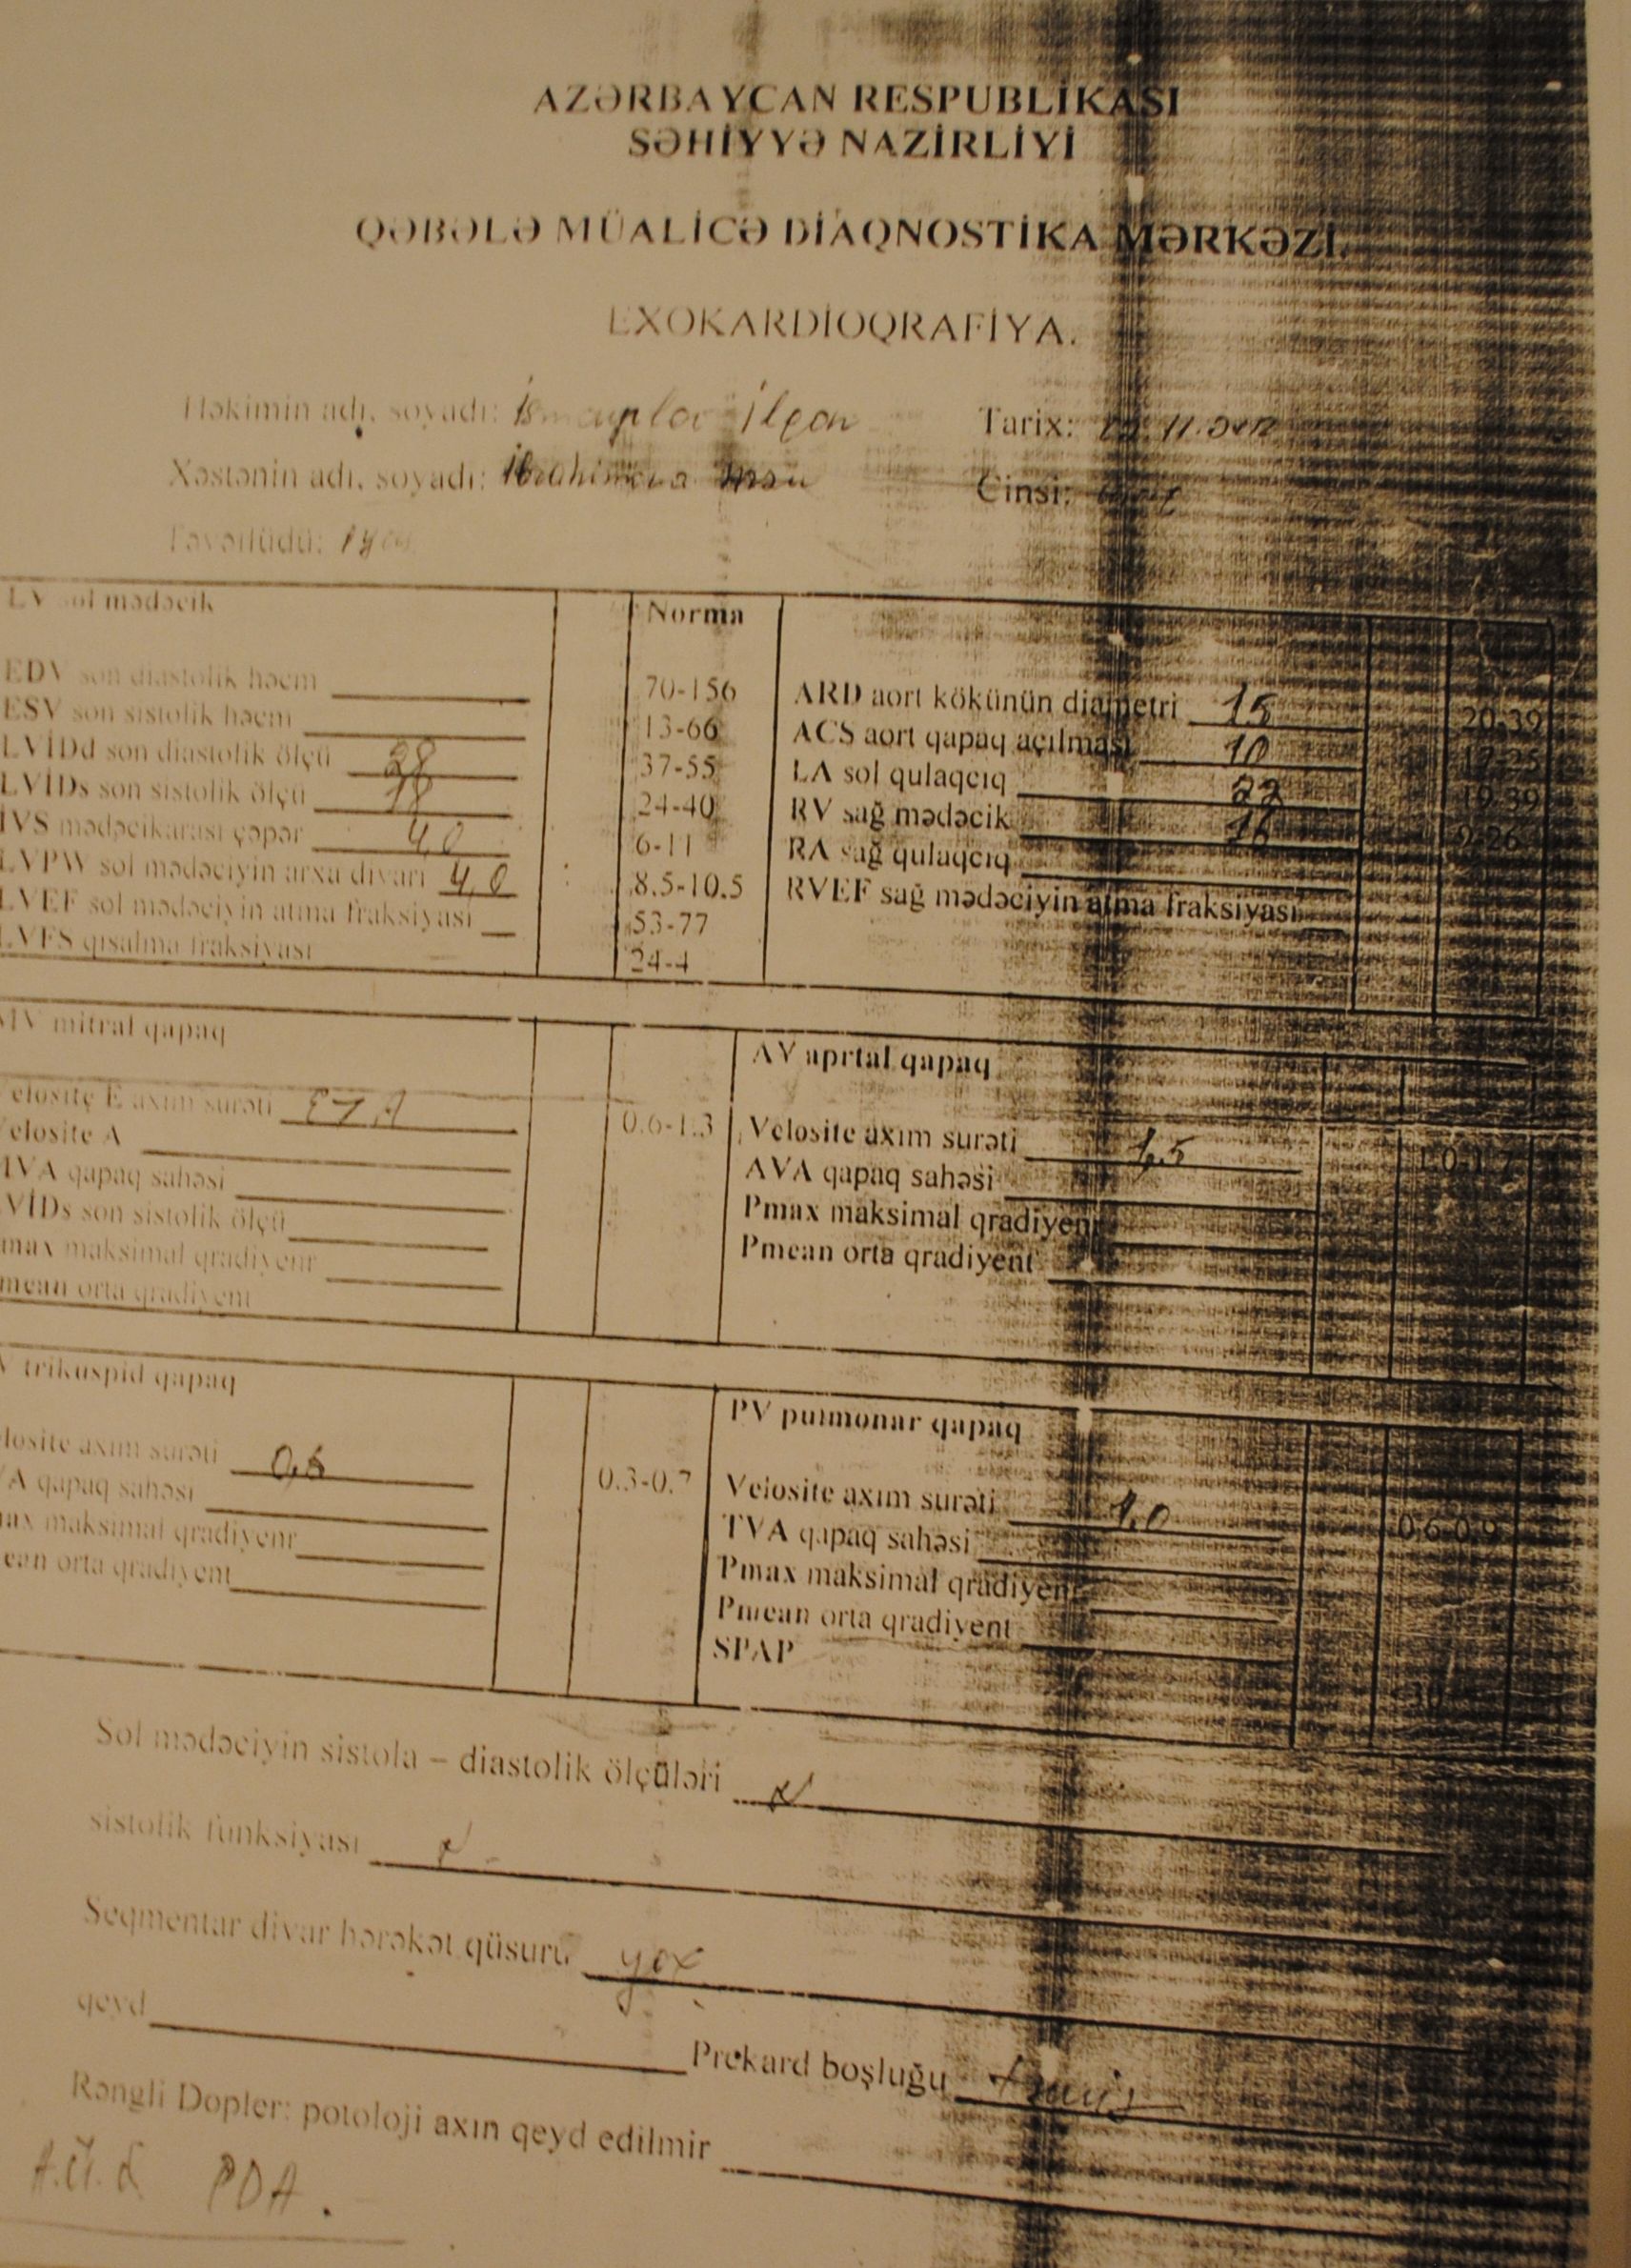 AZƏRBAYCAN RESPUBLİKASI
SƏHİYYƏ NAZİRLİYİ
QƏBƏLƏ MÜALİCƏ DİAQNOSTİKA MƏRKƏZİ.
EXOKARDİOQRAFİYA.
Həkimin adı, soyadı: Tarix:
Xəstənin adı, soyadı: İbrahimova Cinsi:
Təvəllüdü:
LV sol mədəcik Norma
EDV son diastolik həcm 70-156 ARD aort kökünün diametri 15 20-39
ESV son sistolik həcm 13-66 ACS aort qapaq açılması 10 17-25
LVİDd son diastolik ölçü 28 37-55 LA sol qulaqcıq 22 19-39
LVİDs son sistolik ölçü 18 24-40 RV sağ mədəcik 16 9-26
İVS mədəcikarası çəpər 4,0 6-11 RA sağ qulaqcıq
LVPW sol mədəciyin arxa divarı 4,0 8.5-10.5 RVEF sağ mədəciyin atma fraksiyası
LVEF sol mədəciyin atma fraksiyası 53-77
LVFS qısalma fraksiyası 24-4
MV mitral qapaq AV aprtal qapaq
elosite E axım surəti E>A 0.6-1.3 Velosite axım surəti 1,5 1.0-1.7
elosite A AVA qapaq sahəsi
MVA qapaq sahəsi Pmax maksimal qradiyent
VİDs son sistolik ölçü Pmean orta qradiyent
max maksimal qradiyenr
mean orta qradiyent
V trikuspid qapaq PV pulmonar qapaq
losite axım surəti 0,6 0.3-0.7 Velosite axım surəti 1,0 0.6-0.9
A qapaq sahəsi TVA qapaq sahəsi
ax maksimal qradiyenr Pmax maksimal qradiyenr
ean orta qradiyent Pmean orta qradiyent
SPAP 30
Sol mədəciyin sistola – diastolik ölçüləri N
sistolik funksiyası N
Seqmentar divar hərəkət qüsuru yox
qeyd Prekard boşluğu təmiz
Rəngli Dopler: potoloji axın qeyd edilmir
A.Ü.Q PDA.